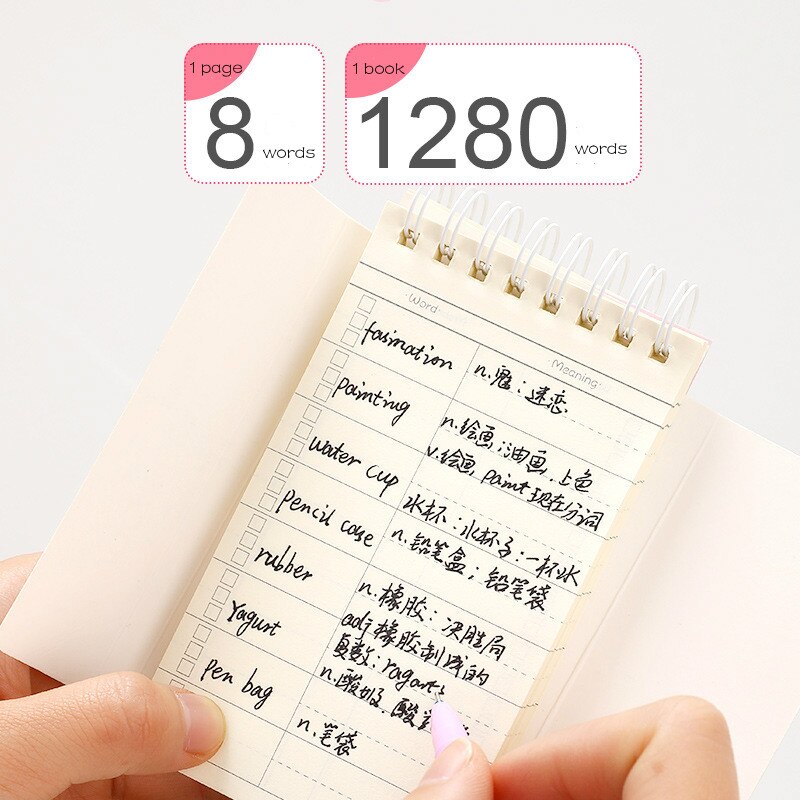 1 page
8 words
1 book
1280 words
Word
Meaning
fasination
n.魅；迷恋
painting
n.绘画；油画．上色
v.绘画，paint现在分词
water cup
水杯：水杯子：一杯水
pencil case
n.铅笔盒；铅笔袋
rubber
n.橡胶：决胜局
adj橡胶制成的
Yagurt
复数：
n.酸奶．酸
pen bag
n.笔袋